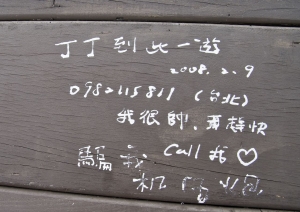 丁丁到此一遊
2008.2.9
0982115811 (台北)
我很帥,要趕快
Call 我♡